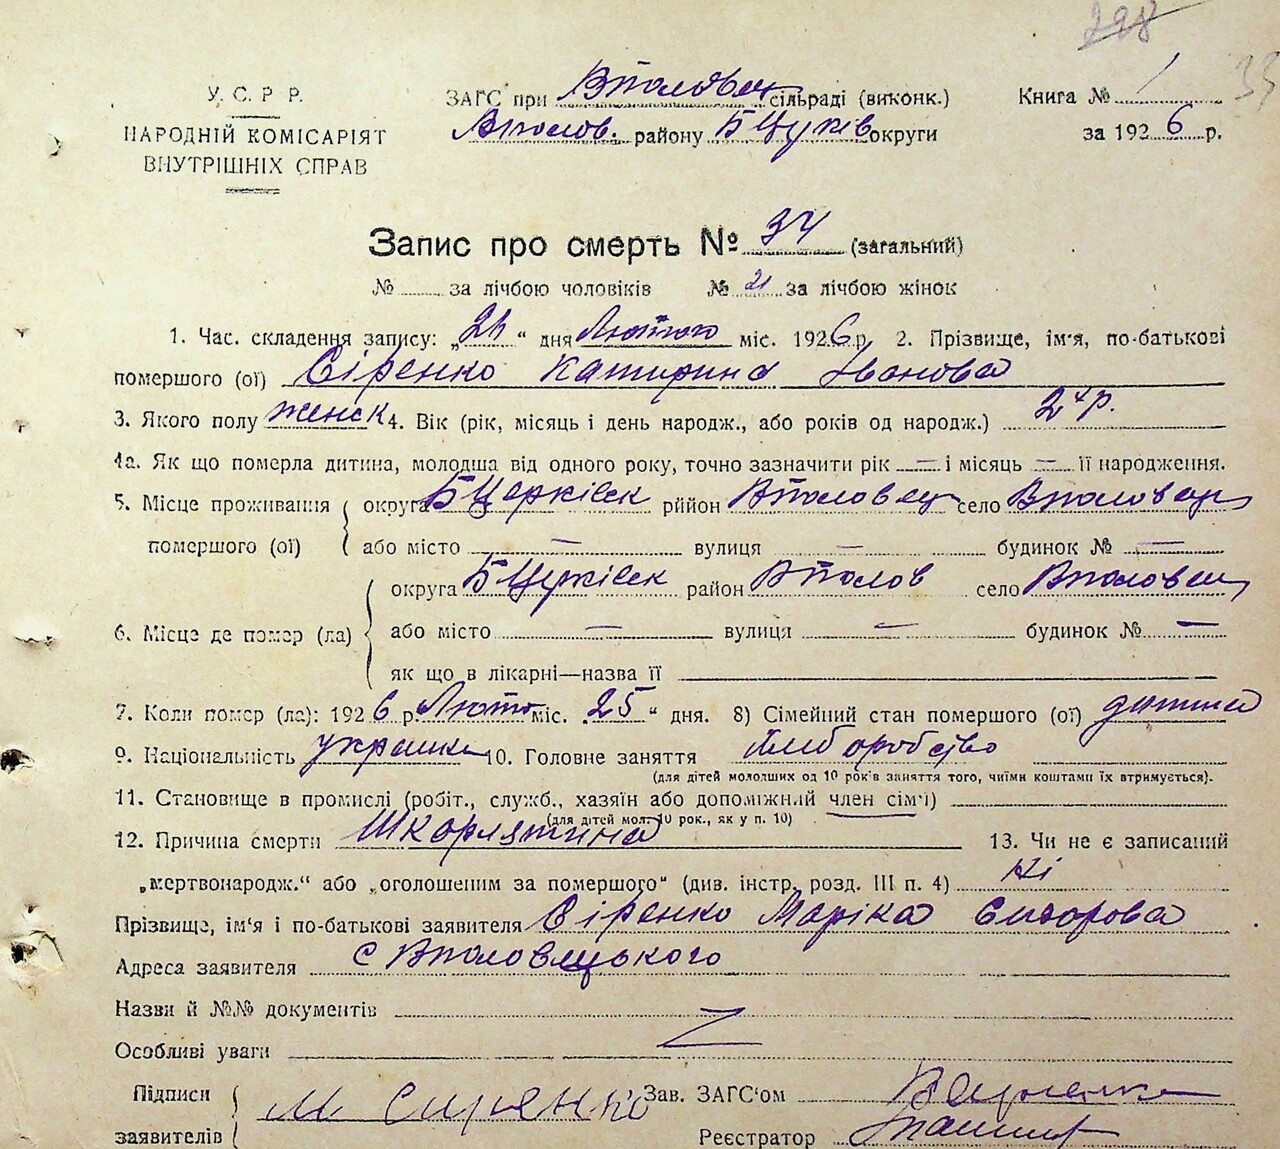 298
33
У. С. Р Р.
НАРОДНІЙ КОМІСАРІЯТ
ВНУТРІШНІХ СПРАВ
ЗАГС при Вполовец. сільраді (виконк.)
Вполов. району БЦуків округи
Книга № 1
за 1926 р.
Запис про смерть № 34 (загальний)
№ за лічбою чоловіків № 21 за лічбою жінок
1. Час. складення запису: „ “ дня Лютою міс. 1926 р. 2. Прізвище, ім'я, по-батькові
помершого (ої) Сіренко Катирина Іванова
3. Якого полу женск 4. Вік (рік, місяць і день народж., або років од народж.) 2 р.
4а. Як що померла дитина, молодша від одного року, точно зазначити рік — і місяць — її народження.
5. Місце проживання помершого (ої) округа БЦерківск рийон Вполовец село Вполовец
або місто — вулиця — будинок № —
6. Місце де помер (ла) округа БЦерківск район Вполов село Вполовец
або місто — вулиця — будинок № —
як що в лікарні—назва її
7. Коли помер (ла): 1926 р. Люто міс. 25 “ дня. 8) Сімейний стан помершого (ої) дитина
9. Національність украинка 10. Головне заняття хліборобство
(для дітей молодших од 10 рок'в заняття того, чиїми коштами їх втримується).
11. Становище в промислі (робіт., служб., хазяїн або допоміжний член сім'ї)
(для дітей мол. 10 рок., як у п. 10)
12. Причина смерти Шкорлятина 13. Чи не є записаний
„мертвонародж.“ або „оголошеним за помершого“ (див. інстр. розд. III п. 4) Ні
Прізвище, ім'я і по-батькові заявителя Сіренко Маріка Сидорова
Адреса заявителя с Вполовецького
Назви й №№ документів
Особливі уваги
Підписи заявителів М Сирянко
Зав. ЗАГС'ом
Реєстратор